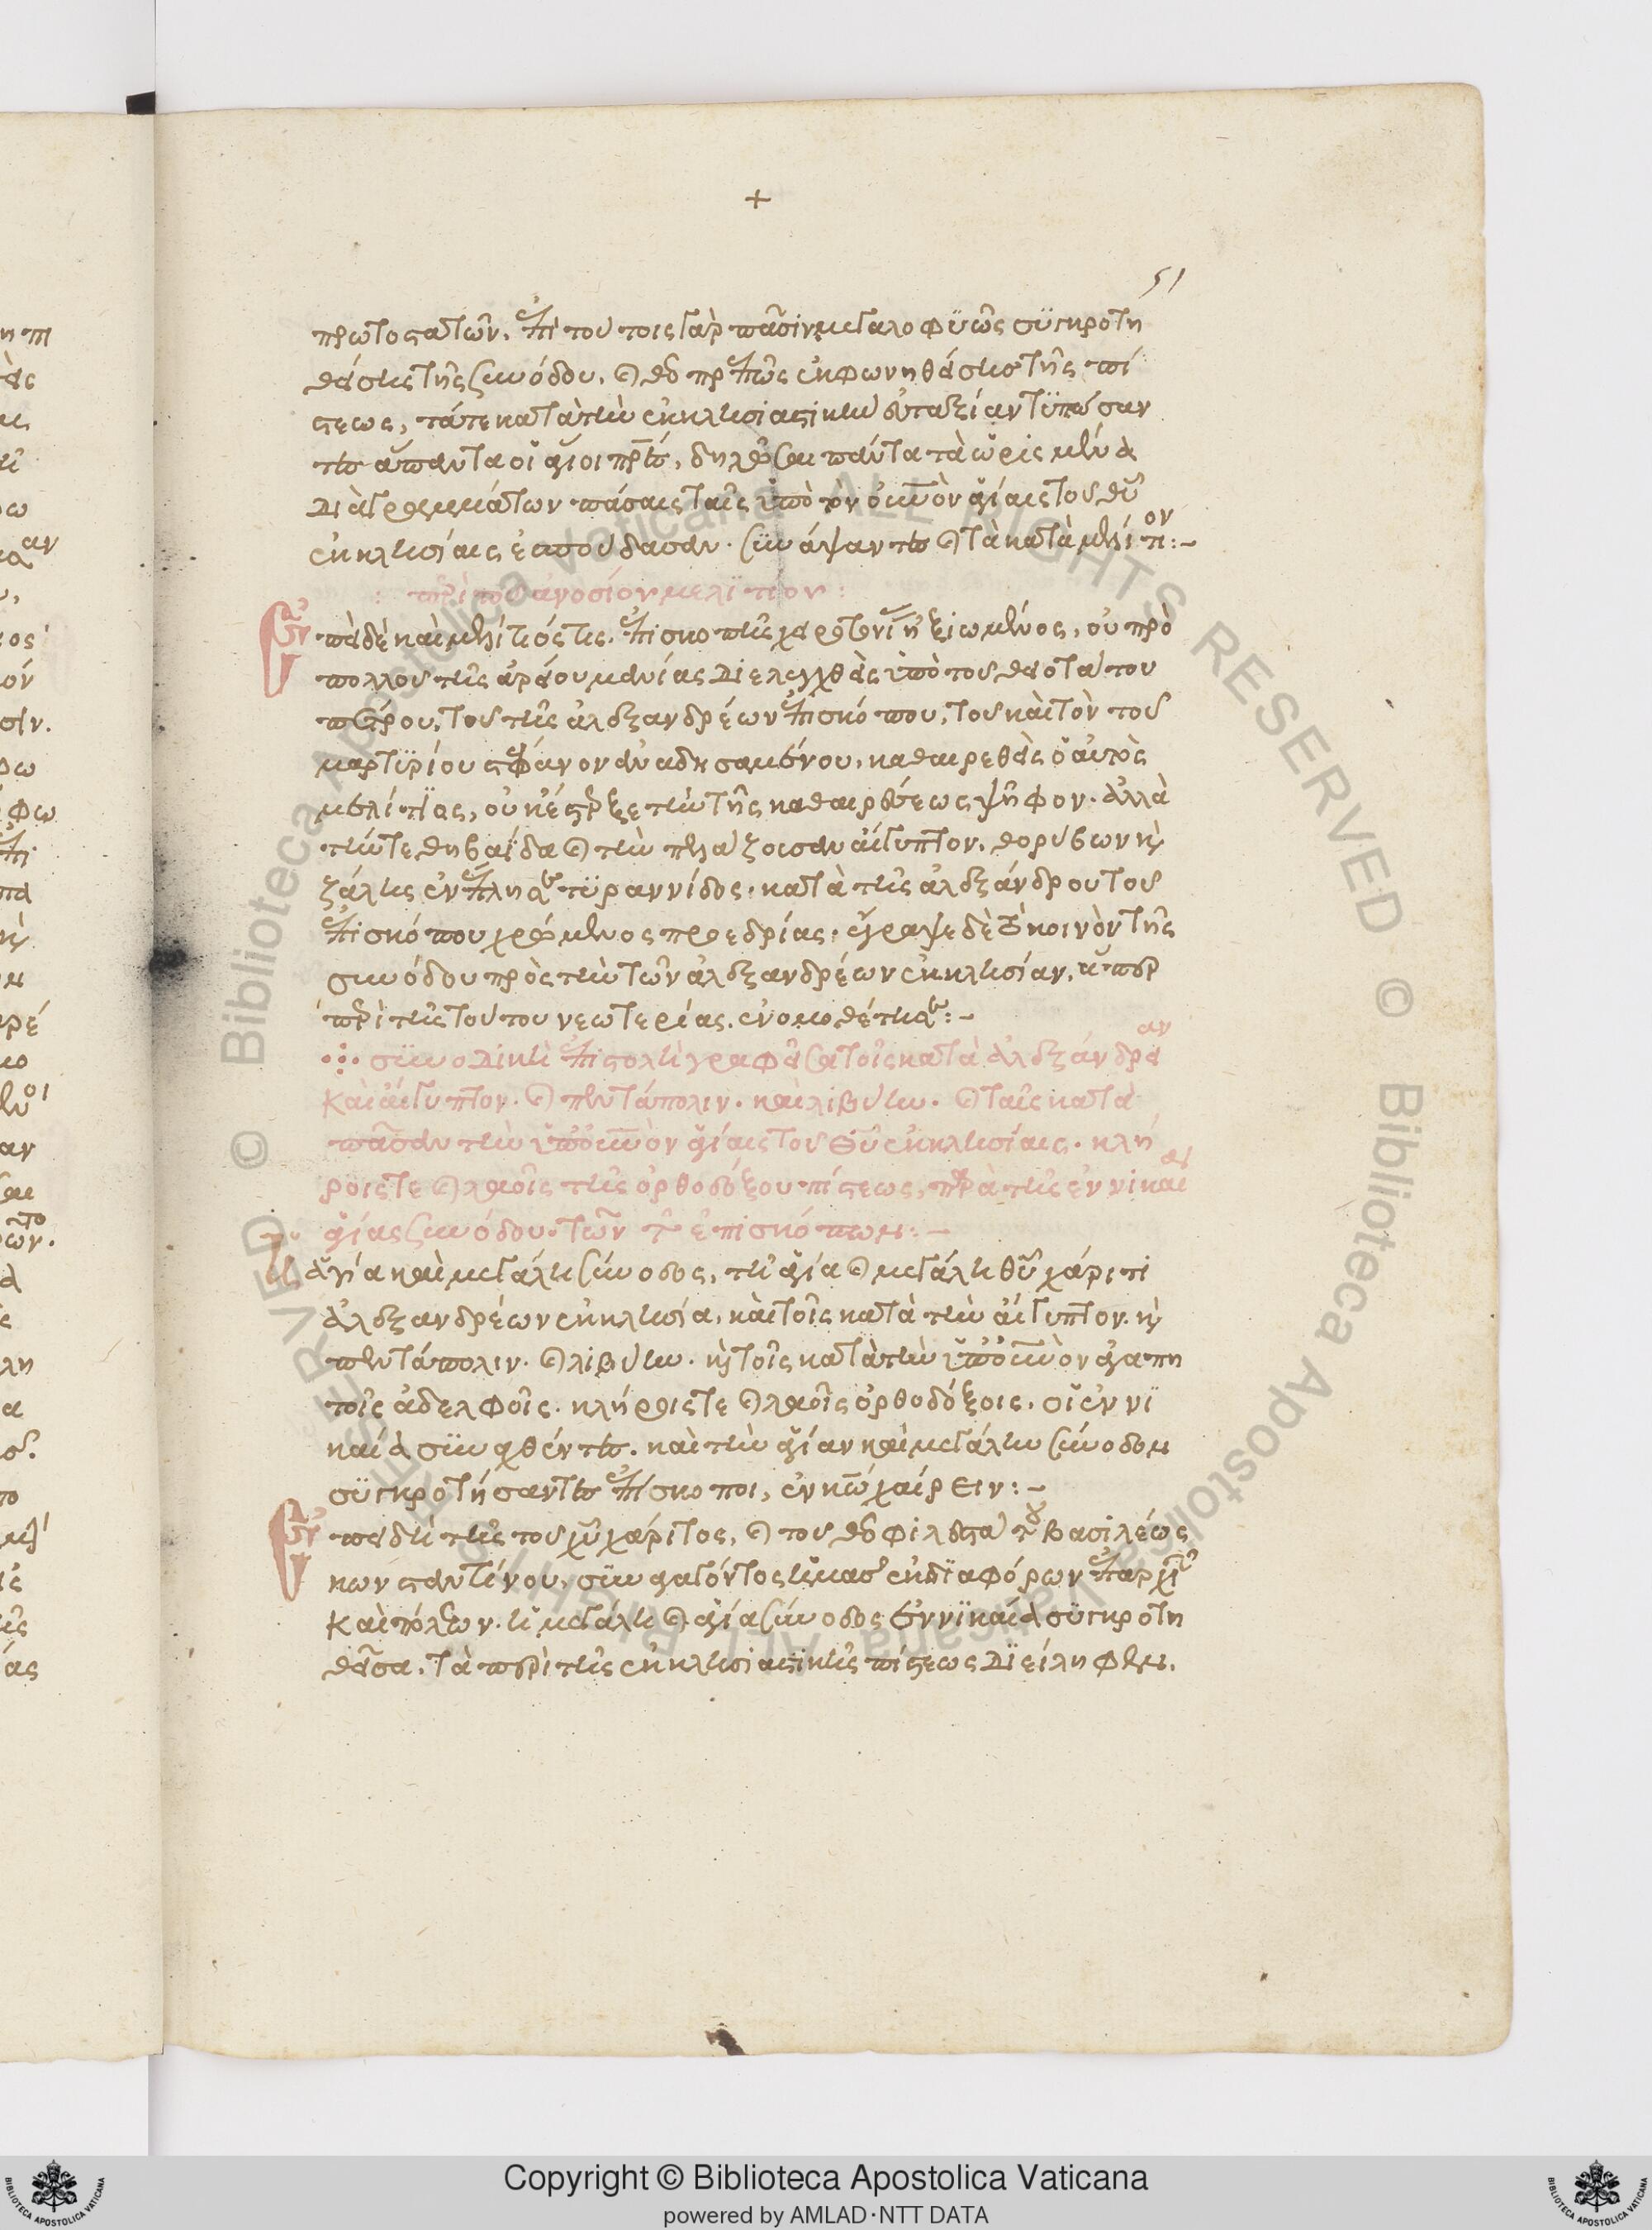 +
51
πρωτοστατῶν. ἐπὶ τούτοις γὰρ πᾶσιν μεγαλοφυῶς συγκροτη
θείσης τῆς συνόδου, καὶ θεοπρεπῶς ἐκφωνηθείσης τῆς πί
στεως, τά τε κατὰ τὴν ἐκκλησιαστικὴν εὐταξίαν τυπώσαν
τες ἅπαντα οἱ ἅγιοι πρες, δηλῶσαι πάντα τὰ ὡρισμένα
διὰ γραμμάτων πάσαις ταῖς ὑπὸ τὸν οὐνὸν ἁγίαις τοῦ θυ
ἐκκλησίαις ἐσπούδασαν. συνάψαντες καὶ τὰ κατὰ μελίτιον:-
περὶ τοῦ ἀνοσίου μελιτίου:
ἔπειτα δὲ καὶ μελίτιός τις. ἐπισκοπῆς χειροτονίαν ἠξιωμένος, οὐ πρὸ
πολλοῦ τῆς ἀρείου μανίας διελεγχθεὶς ὑπὸ τοῦ θειοτάτου
πέτρου, τοῦ τῆς ἀλεξανδρέων ἐπισκόπου, τοῦ καὶ τὸν τοῦ
μαρτυρίου στέφανον ἀναδησαμένου, καθαιρεθεὶς ὁ αὐτὸς
μελίτιος, οὐκ ἔστερξε τὴν τῆς καθαιρέσεως ψῆφον. ἀλλὰ
τήν τε θηβαΐδα καὶ τὴν πελάζουσαν αἴγυπτον, θορύβων καὶ
ζάλης ἐνέπλησε τυραννίδος. κατὰ τῆς ἀλεξάνδρου τοῦ
ἐπισκόπου χρώμενος προεδρίας. ἔγραψε δὲ τὸ κοινὸν τῆς
συνόδου πρὸς τὴν τῶν ἀλεξανδρέων ἐκκλησίαν, ἅπερ
περὶ τῆς τούτου νεωτερίας ἐνομοθέτησε:-
συνοδικὴ ἐπιστολὴ γραφεῖσα τοῖς κατὰ ἀλεξάνδρειαν
καὶ αἴγυπτον. καὶ πεντάπολιν. καὶ λιβύην. καὶ ταῖς κατὰ
πᾶσαν τὴν ὑπ' οὐνὸν ἁγίαις τοῦ θυ ἐκκλησίαις. κλή
ροις τε καὶ λαοῖς τῆς ὀρθοδόξου πίστεως, παρὰ τῆς ἐν νικαίᾳ
ἁγίας συνόδου. τῶν τ ἐπισκόπων:-
τῇ ἁγίᾳ καὶ μεγάλη σύνοδος, τῇ ἁγίᾳ καὶ μεγάλῃ θυ χάριτι
ἀλεξανδρέων ἐκκλησίᾳ, καὶ τοῖς κατὰ τὴν αἴγυπτον. καὶ
πεντάπολιν. καὶ λιβύην. καὶ τοῖς κατὰ τὴν ὑπ' οὐνὸν ἀγαπη
τοῖς ἀδελφοῖς. κλήροις τε καὶ λαοῖς ὀρθοδόξοις. οἱ ἐν νι
καίᾳ συναχθέντες. καὶ τὴν ἁγίαν καὶ μεγάλην σύνοδον
συγκροτήσαντες ἐπίσκοποι, ἐν κω χαίρειν:-
ἐπειδὴ τῆς τοῦ χυ χάριτος, καὶ τοῦ θεοφιλεστάτου βασιλέως
κωνσταντίνου, συναγαγόντος ἡμᾶς ἐκ διαφόρων ἐπαρχιῶν
καὶ πόλεων. ἡ μεγάλη καὶ ἁγία σύνοδος ἐν νικαίᾳ συγκροτη
θεῖσα. τὰ περὶ τῆς ἐκκλησιαστικῆς πίστεως διείληφεν.
Copyright © Biblioteca Apostolica Vaticana
powered by AMLAD·NTT DATA